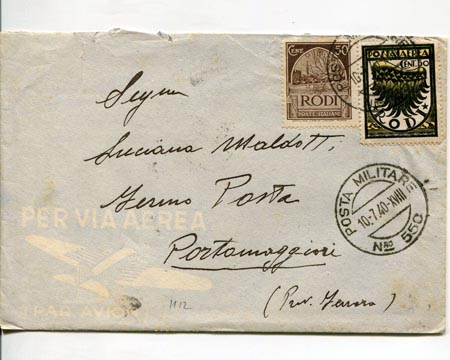 CENT. 50
RODI
POSTE ITALIANE
POSTA AEREA
CENT. 50
RODI
Segnu
Luciana Maldotti
Fermo Posta
Portomaggiore
(Prov. Ferrara)
PER VIA AEREA
PAR AVION
1112
POSTA MILITARE
10·7·40·XVIII
Nro 550